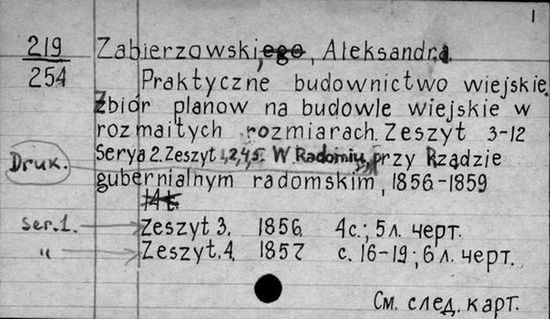 1
219 Zabierzowski, Aleksandr.
254 Praktyczne budownictwo wiejskie.
Zbiór planow na budowle wiejskie w
rozmaitych rozmiarach. Zeszyt 3-12
Serya 2. Zeszyt 1,2,4,5. W Radomiu, przy Rządzie
Druk.
gubernialnym radomskim, 1856-1859
14 t.
ser. 1. Zeszyt 3. 1856 4с.; 5л. черт.
" Zeszyt. 4. 1857 с. 16-19; 6л. черт.
См. след. карт.